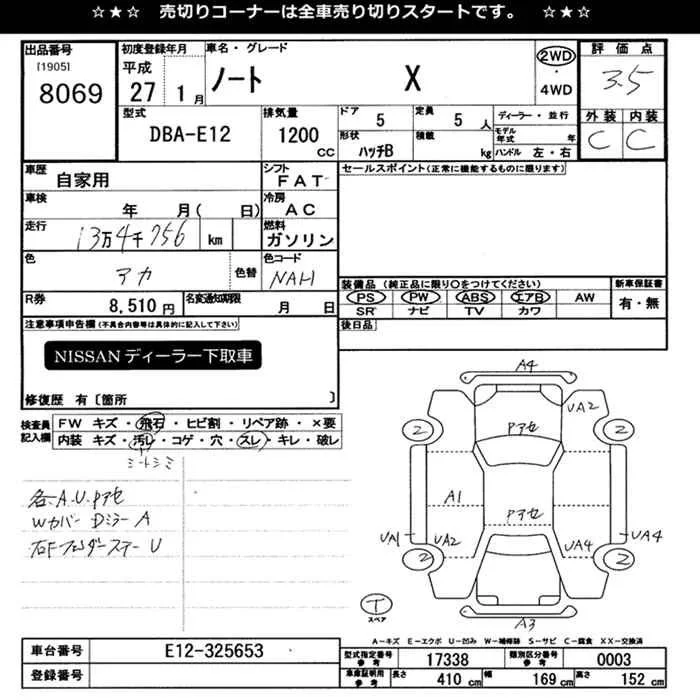 ☆ ★ ☆ 売切りコーナーは全車売り切りスタートです。 ☆ ★ ☆
出品番号
[1905]
8069
初度登録年月
平成
27 1月
車名・グレード
ノート X
2WD
・
4WD
評価点
3.5
外装 内装
C C
型式
DBA-E12
排気量
1200
cc
ドア
5
定員
5 人
形状
ハッチB
積載
kg
ディーラー・並行
モデル年式 年
ハンドル 左・右
車歴
自家用
シフト
FAT
車検
年 月( 日)
冷房
AC
走行
13万4千756 km
燃料
ガソリン
色
アカ
色替
色コード
NAH
R券
8,510円
名変通知期限
月 日
セールスポイント(正常に機能するものに限ります)
装備品(純正品に限り○をつけてください)
PS PW ABS エアB AW
SR ナビ TV カワ
新車保証書
有・無
後日品
注意事項申告欄(不具合内容等は具体的に記入して下さい)
NISSANディーラー下取車
修復歴 有〔箇所 〕
検査員
記入欄
FW キズ・飛石・ヒビ割・リペア跡・×要
内装 キズ・汚レ・コゲ・穴・スレ・キレ・破レ
シートシミ
各A.U.Pアセ
Wカバー Dミラー A
右Fフェンダーステー U
A4
UA2
2
2
Pアセ
A1
Pアセ
UA1
UA2
UA4
UA4
2
2
T
スペア
A3
A-キズ E-エクボ U-凹み W-補修跡 S-サビ C-腐食 XX-交換済
車台番号
E12-325653
登録番号
型式指定番号
参考
17338
類別区分番号
参考
0003
車庫証明用
参考
長さ
410 cm
幅
169 cm
高さ
152 cm